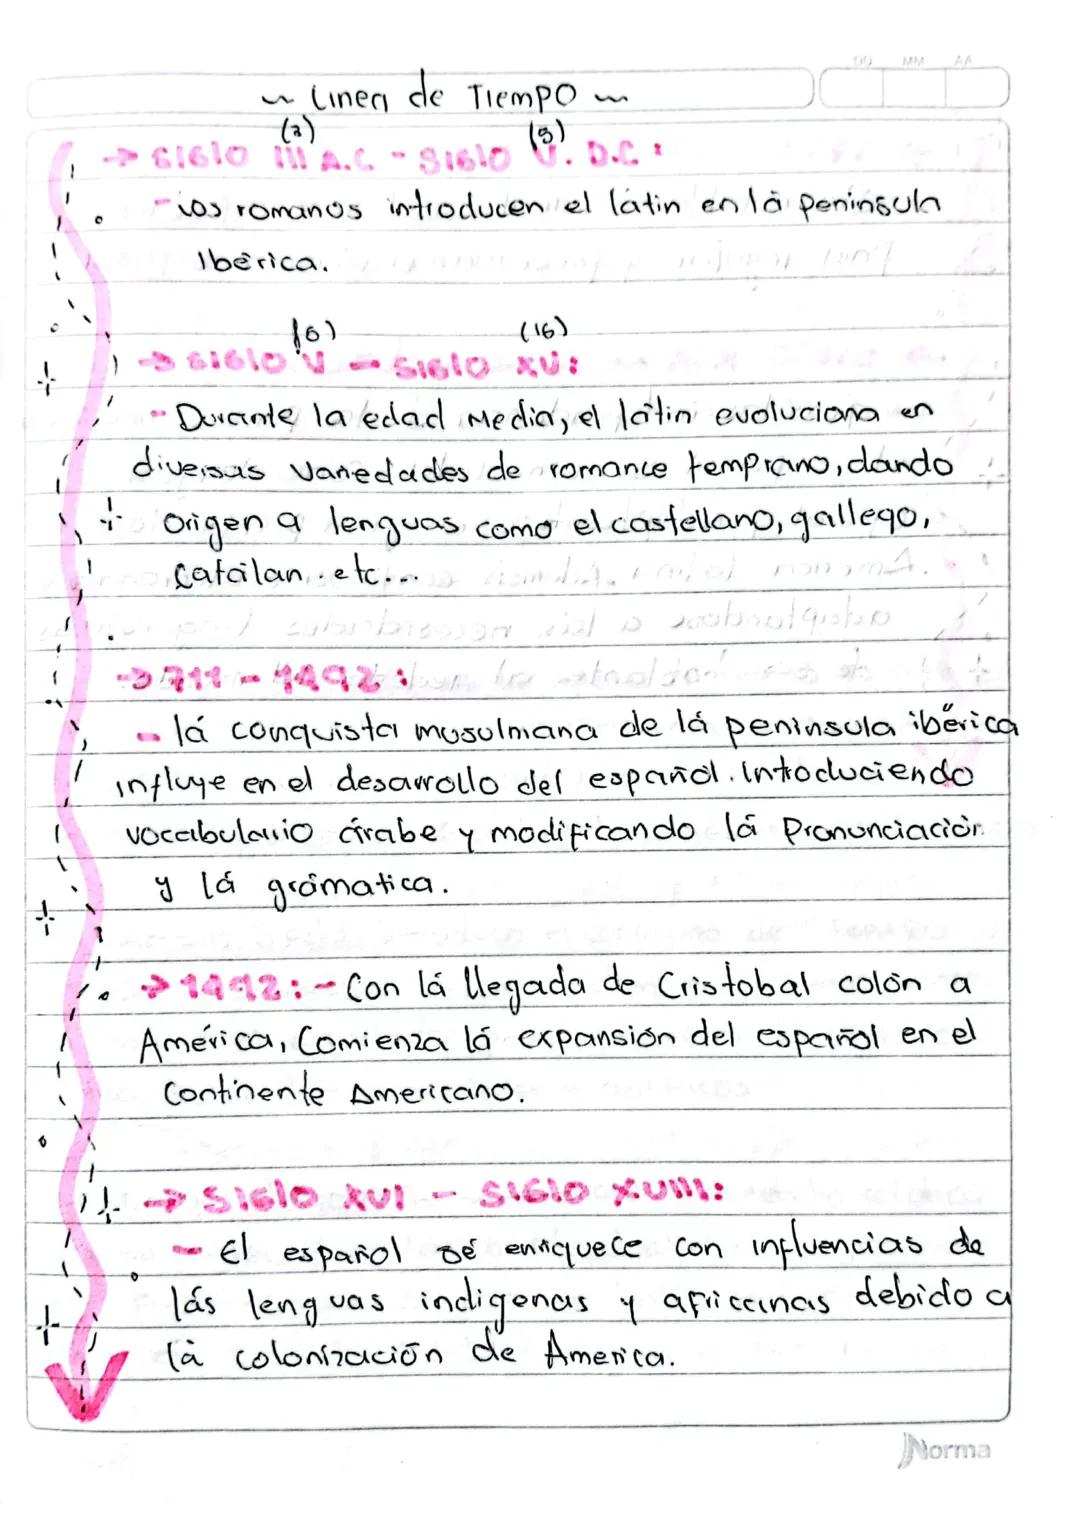 DD MM AA
~ Linea de Tiempo ~
(3) (5)
→ Siglo III A.C - Siglo V. D.C:
- los romanos introducen el látin en lá península
Ibérica.
(5) (16)
→ Siglo V - Siglo XV:
- Durante la edad Media, el látin evoluciona en
diversas variedades de romance temprano, dando
Origen a lenguas como el castellano, gallego,
Catálan. etc...
→ 711 - 1492:
- lá conquista musulmana de lá península ibérica
influye en el desarrollo del español. Introduciendo
vocabulario árabe y modificando lá Pronunciación
y lá grámatica.
→ 1492: - Con lá llegada de Cristobal colón a
América, Comienza lá expansión del español en el
Continente Americano.
→ Siglo XVI - Siglo XVIII:
- El español sé enriquece con influencias de
lás lenguas indigenas y africanas debido a
lá colonización de America.
Norma